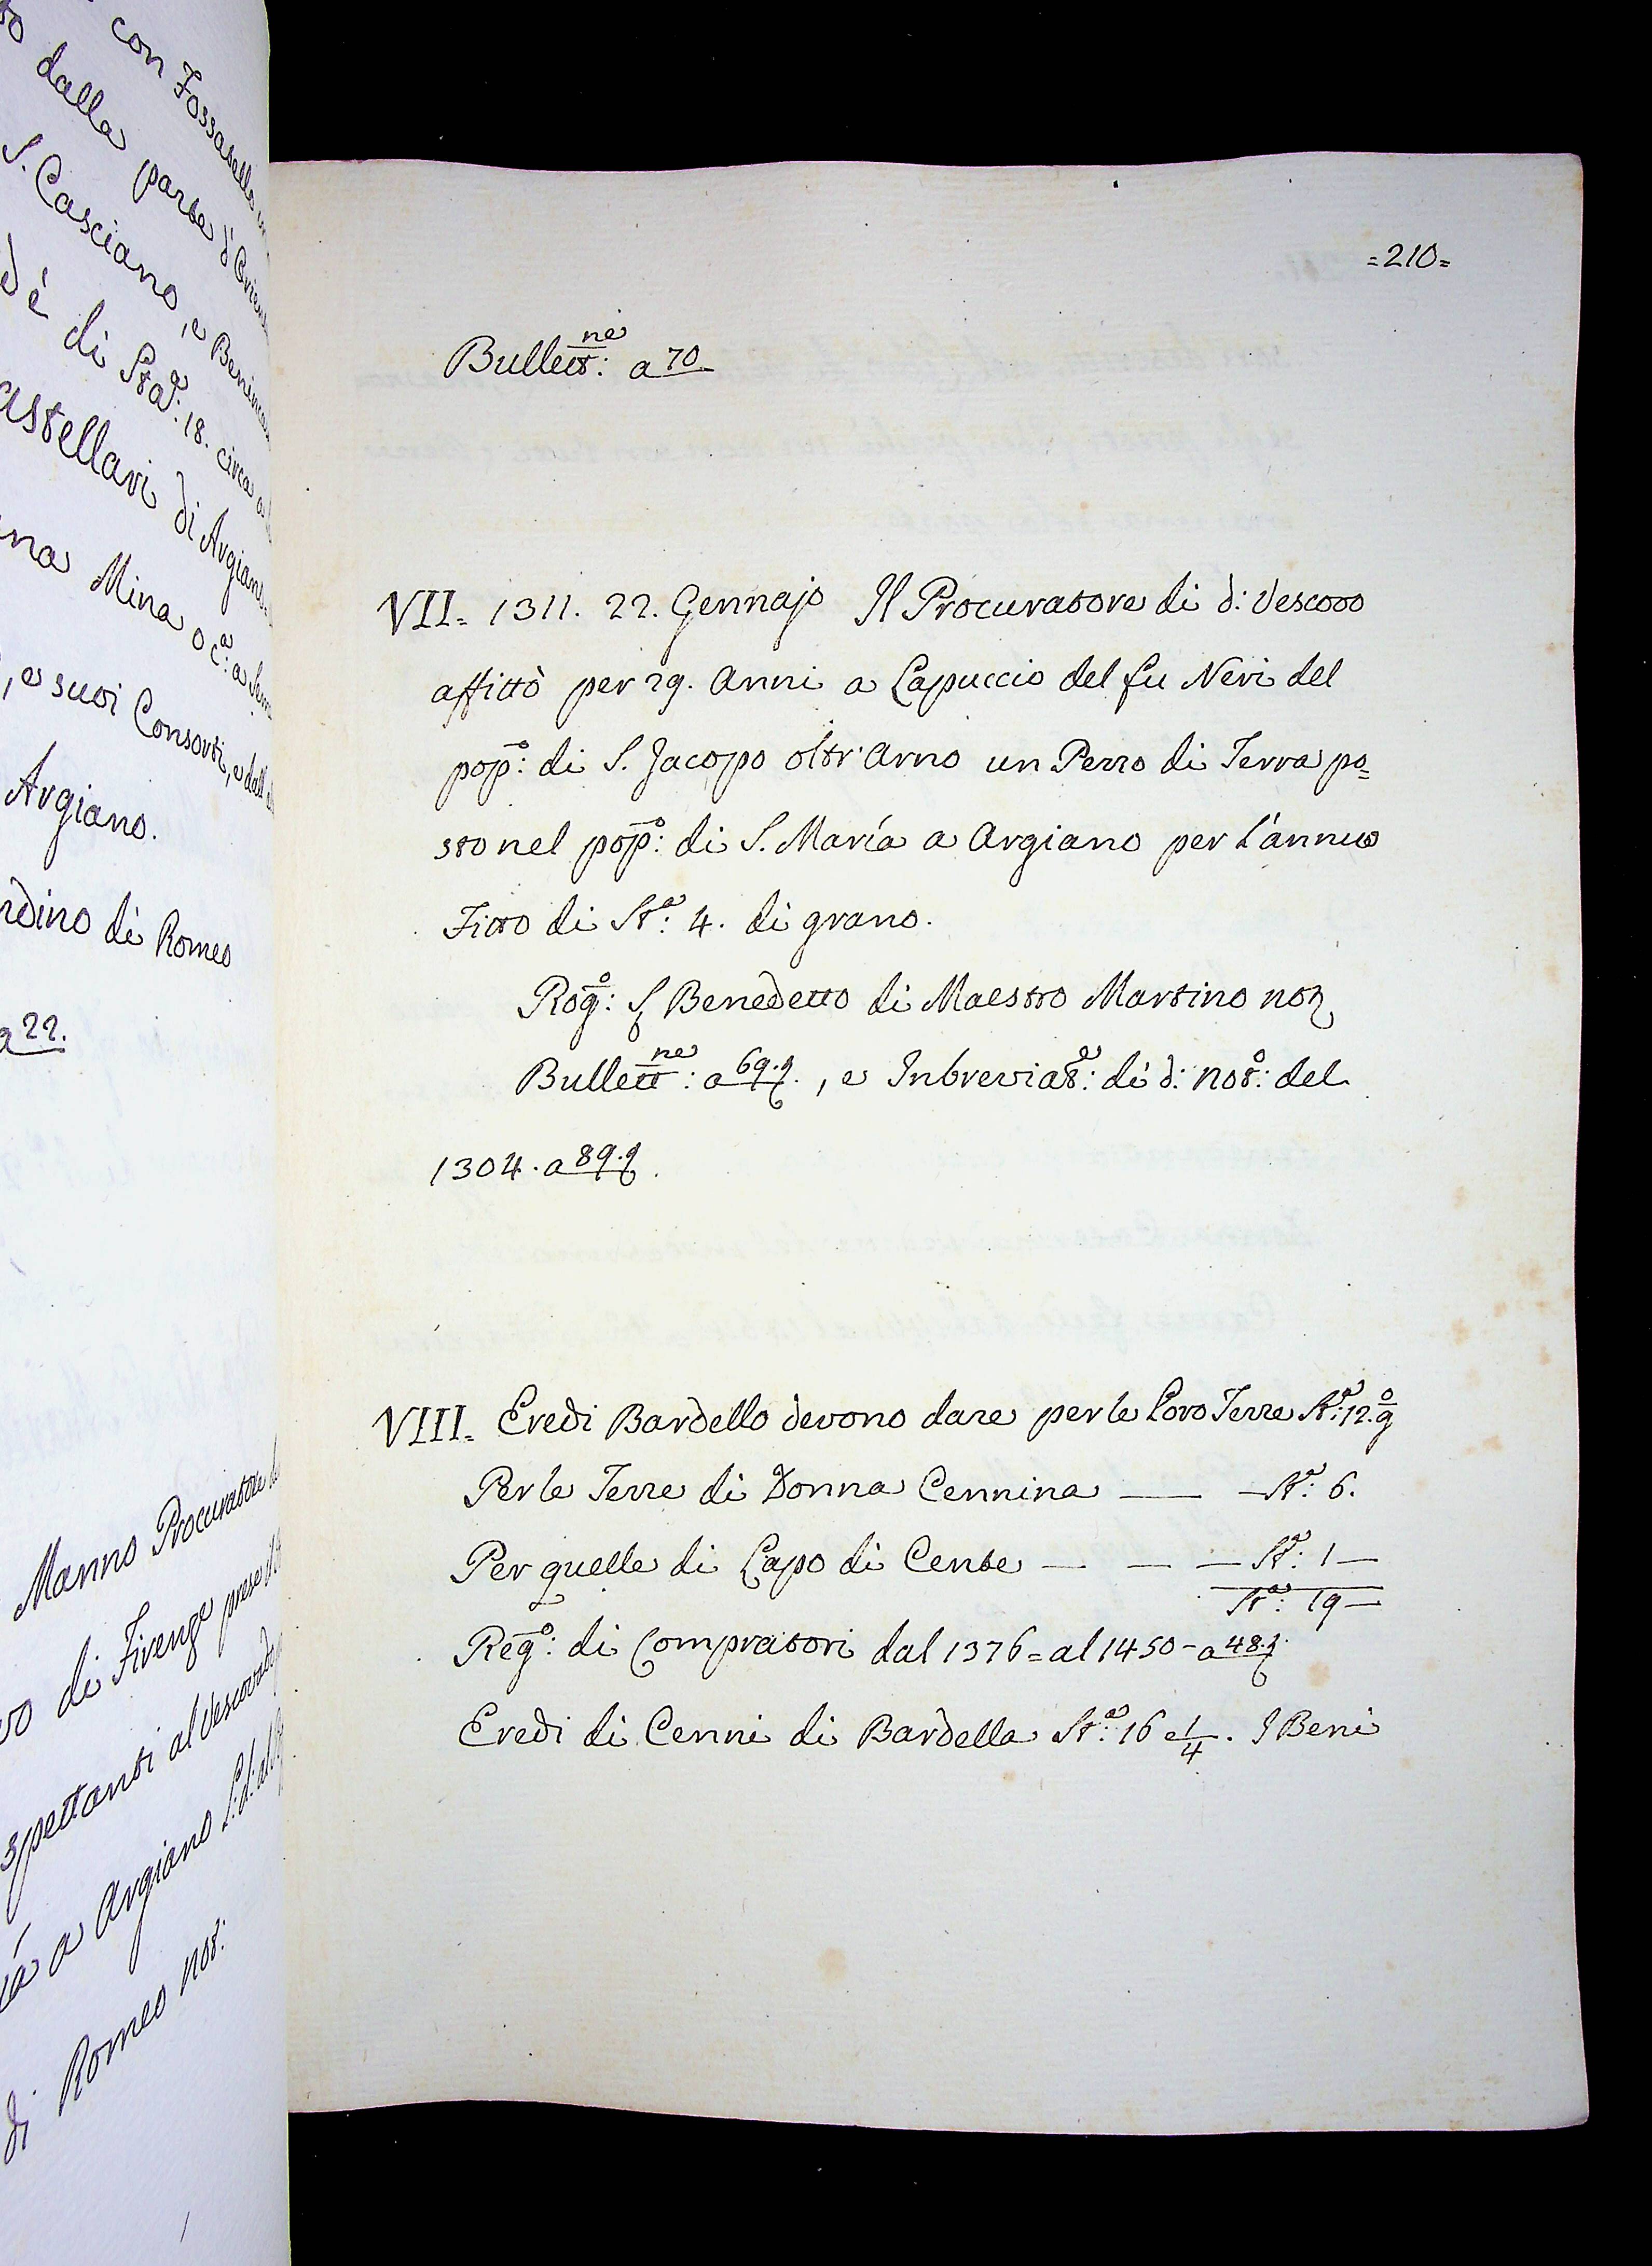 con Fossatello
dalla parte d'Orien
S. Casciano, e Benin
è di Sta: 18. circa a
astellari di Argiano
na Mina o ca: a Sem
, e suoi Consorti, e dall
Argiano.
rdino di Romeo
a 22.
Manno Procuratore
vo di Firenze prese
spettanti al Vescovado
ia a Argiano
di Romeo not:
=210=
Bullett:ne a 70.
VII. 1311. 22. Gennajo Il Procuratore di d: Vescovo
affittò per 29. Anni a Lapuccio del fu Neri del
pop:o di S. Jacopo oltr'Arno un Pezzo di Terra po=
sto nel pop:o di S. Maria a Argiano per l'annuo
Fitto di St:a 4. di grano.
Rog:o S Benedetto di Maestro Martino not
Bullett:ne a 69.t., e Inbreviat:e di d: not:o del
1304. a 89.t.
VIII. Eredi Bardello devono dare per le loro Terre St:a 12. g:o
Per le Terre di Donna Cennina — — St:a 6.
Per quelle di Capo di Cente — — — St:a 1 —
St:a 19 —
Reg:o di Compratori dal 1376= al 1450 - a 48.t.
Eredi di Cenni di Bardella St:a 16 e 1/4. I Beni